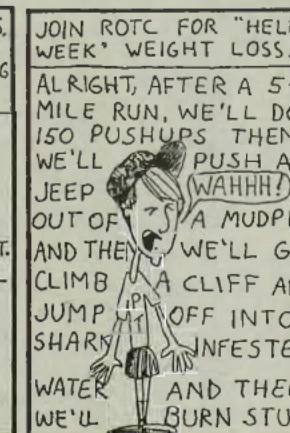 JOIN ROTC FOR "HELL
WEEK" WEIGHT LOSS.
ALRIGHT, AFTER A 5-
MILE RUN, WE'LL DO
150 PUSHUPS THEN
WE'LL PUSH A
JEEP WAHHH!
OUT OF A MUDP
AND THEN WE'LL G
CLIMB A CLIFF A
JUMP OFF INTO
SHARK INFESTE
WATER AND THEN
WE'LL BURN STU